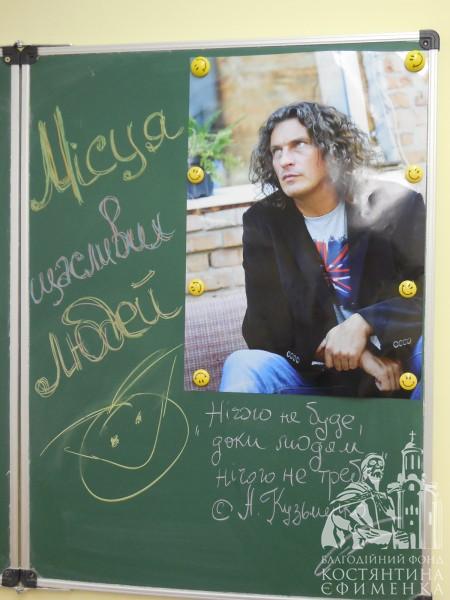 Місця
щасливих
людей
"Нічого не буде,
доки людям
нічого не треба"
© А. Кузьменко
БЛАГОДІЙНИЙ ФОНД
КОСТЯНТИНА
ЄФИМЕНКА